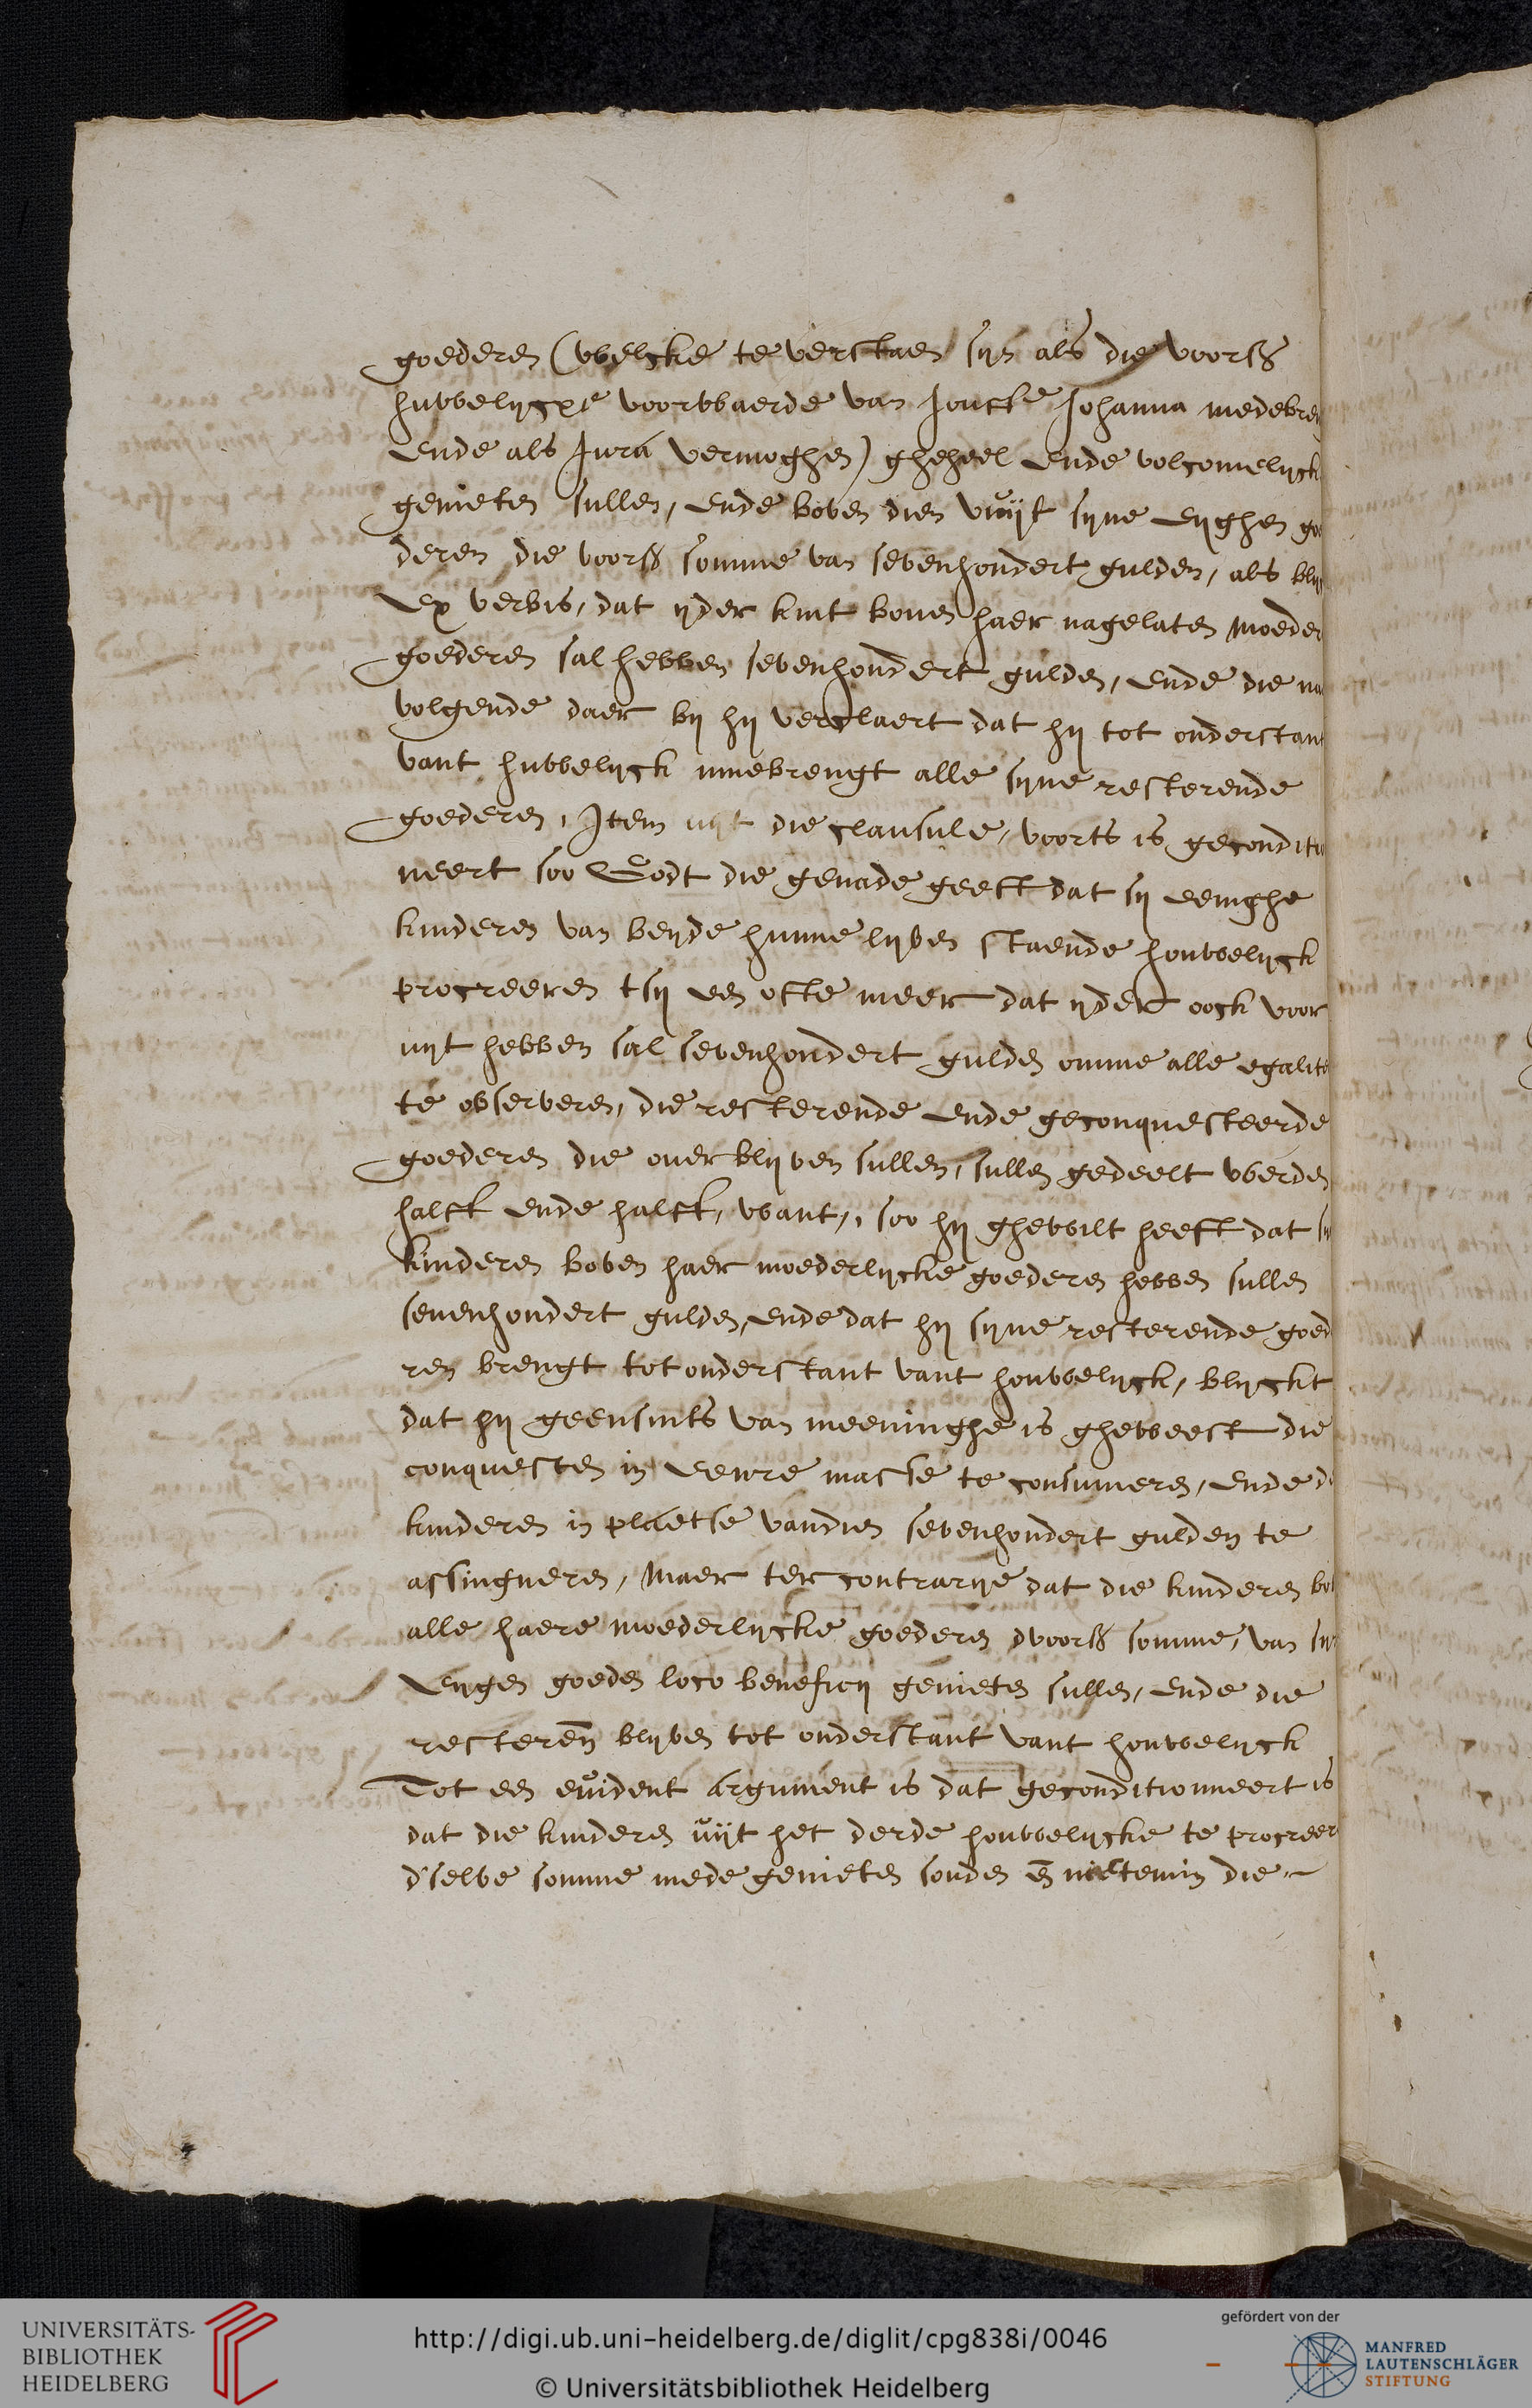 goederen (welcke te verstaen sijn als die voors
huwelijcxe voorwaerde van Jouckr Johanna medebren
ende als Jura vermoghen) gheheel ende volcomelijck
genieten sullen, ende boven dien vuijt sijne eijghen goe
deren die voors somme van sevenhondert gulden, als blij
ex verbis, dat ijder kint bouen haer nagelaten moeder
goederen sal hebben sevenhondert gulden, ende die na
volgende daer bij hij verclaert dat hij tot onderstant
vant huwelijck innebrengt alle sijne resterende
goederen, Item uijt die clausule, voorts is geconditio
neert soo Godt die genade geeft dat sij eenighe
kinderen van beijde hunne lijven staende houwelijck
procreeren tsij een ofte meer dat ijder oock voor
uijt hebben sal sevenhondert gulden omme alle egalite
te observeren, die resterende ende geconquesteerde
goederen die ouerblijven sullen, sullen gedeelt werden
halff ende halff, want, soo hij ghewilt heeft dat
kinderen boven haer moederlijcke goederen hebben sullen
seuenhondert gulden, ende dat hij sijne resterende goed
ren brengt tot onderstant vant houwelijck, blijckt
dat hij geensints van meeninghe is gheweest die
conquesten in eenre masse te consumeren, ende d
kinderen in plaetse vandien sevenhondert gulden te
assingneren, maer ter contrarije dat die kinderen bo
alle haere moederlijcke goederen dvoors somme, van sijn
eijgen goeden loco beneficij genieten sullen, ende die
resteren blijven tot onderstant vant houwelijck
Tot een evident argument is dat geconditionneert is
dat die kinderen uijt het derde houwelijcke te procreer
d'selve somme mede genieten souden en niettemin die
UNIVERSITÄTS-
BIBLIOTHEK
HEIDELBERG
http://digi.ub.uni-heidelberg.de/diglit/cpg838i/0046
© Universitätsbibliothek Heidelberg
gefördert von der
MANFRED
LAUTENSCHLÄGER
STIFTUNG